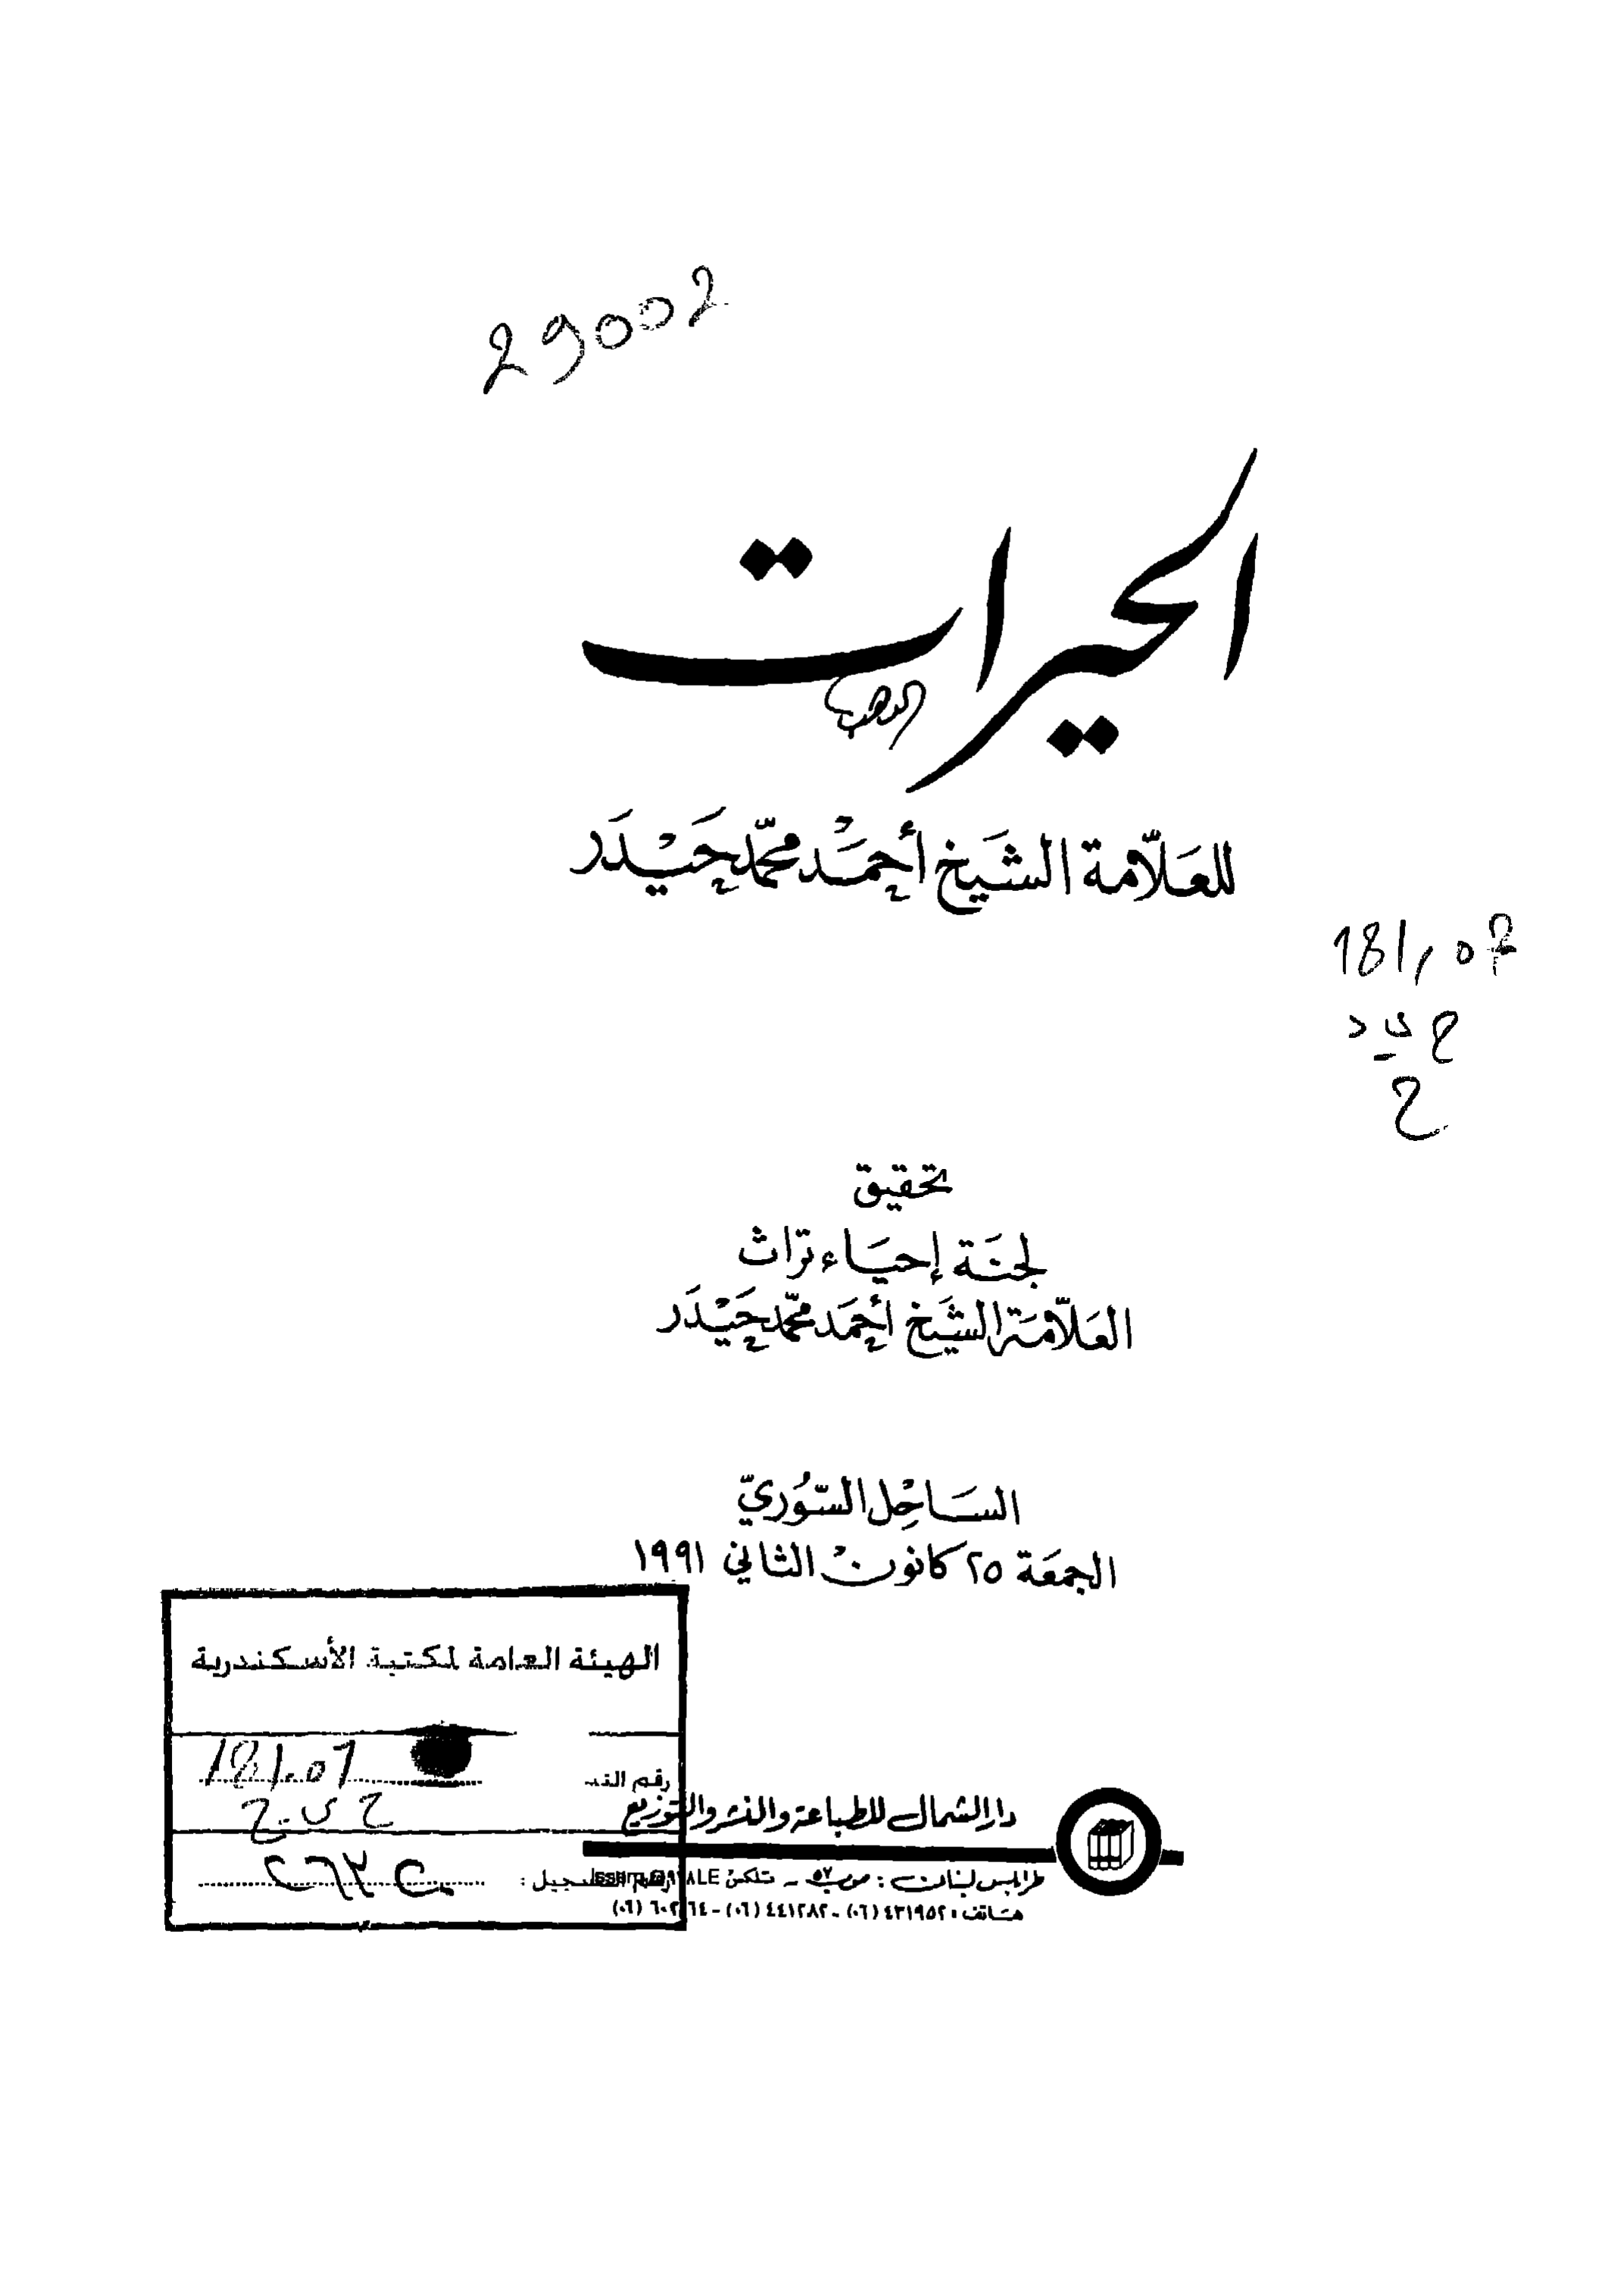 29002
الحيرات
للعَلّامة الشَيخ أحمَد محمّد حَيْدَر
181,07
ح ي د
ح
تحقيق
لجنَة إحيَاء تراث
العَلّامَة الشَيخ أحمَد محمّد حَيْدَر
السَاحِل السّوُريّ
الجمعَة ٢٥ كانون الثاني ١٩٩١
الهيئة العامة لمكتبة الأسكندرية
رقم التـ
181.07
ح ي . ح
دار الشمال للطباعة والنشر والتوزيع
طرابلس لبنان : ص ب ٥٧ - تلكس
رقم التسجيل :
هاتف : ٤٣١٩٥٢ (٠٦) - ٤٤١٢٨٢ (٠٦) -